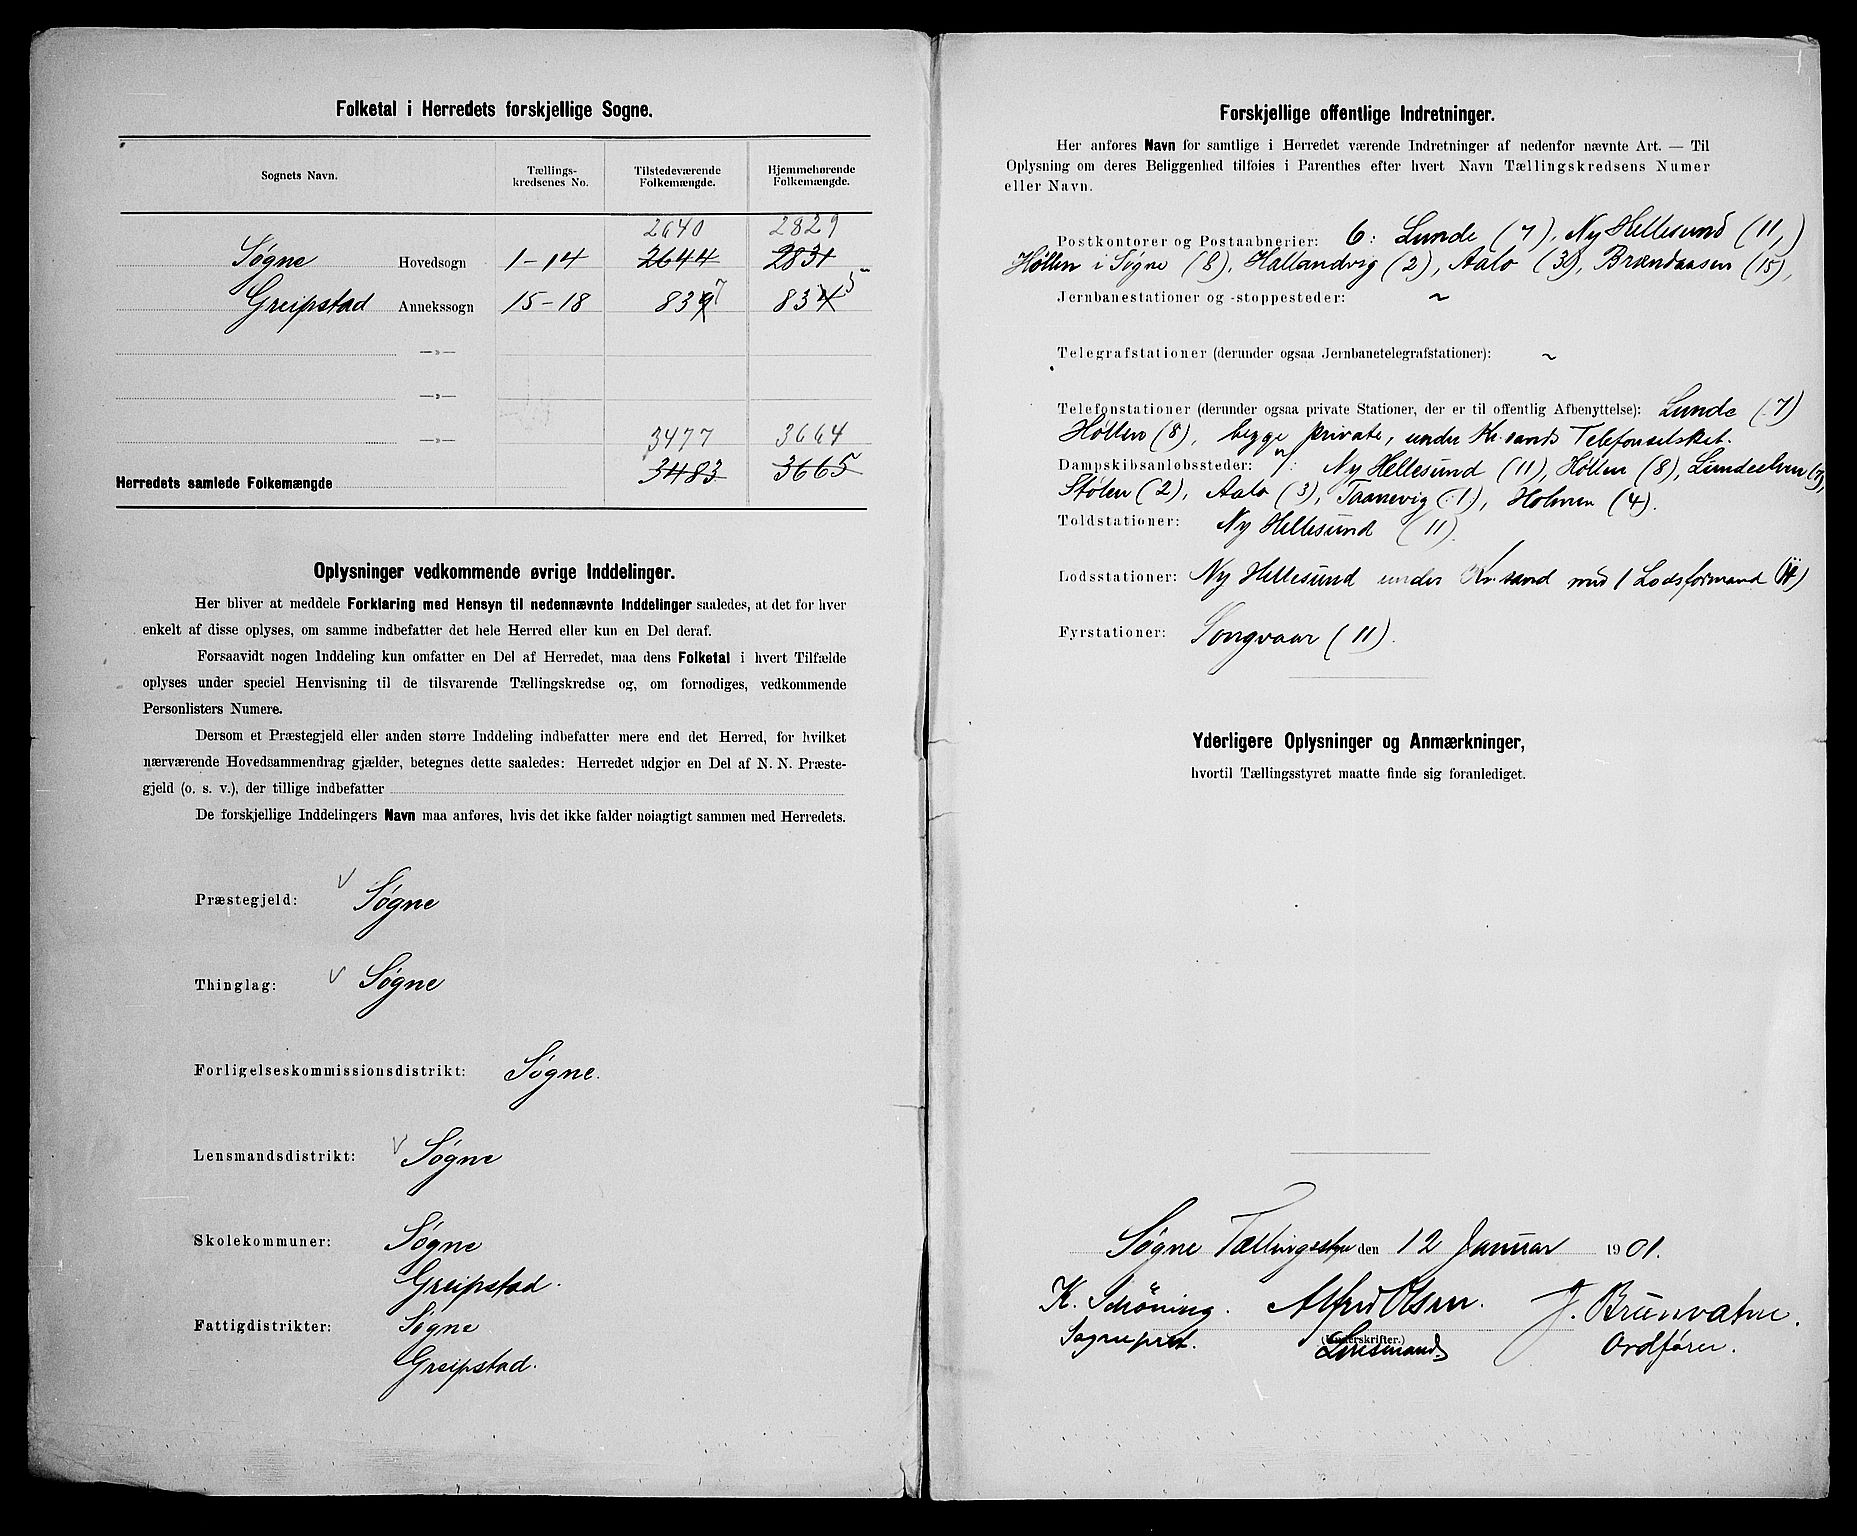 Folketal i Herredets forskjellige Sogne.
Sognets Navn. Tællings-kredsenes No. Tilstedeværende Folkemængde. Hjemmehørende Folkemængde.
2640 2829
Søgne Hovedsogn 1-14 2644 2831
Greipstad Annekssogn 15-18 8397 8345
—»—
—»—
—»— 3477 3664
Herredets samlede Folkemængde 3483 3665
Oplysninger vedkommende øvrige Inddelinger.
Her bliver at meddele Forklaring med Hensyn til nedennævnte Inddelinger saaledes, at det for hver
enkelt af disse oplyses, om samme indbefatter det hele Herred eller kun en Del deraf.
Forsaavidt nogen Inddeling kun omfatter en Del af Herredet, maa dens Folketal i hvert Tilfælde
oplyses under speciel Henvisning til de tilsvarende Tællingskredse og, om fornødiges, vedkommende
Personlisters Numere.
Dersom et Præstegjeld eller anden større Inddeling indbefatter mere end det Herred, for hvilket
nærværende Hovedsammendrag gjælder, betegnes dette saaledes: Herredet udgjør en Del af N. N. Præste-
gjeld (o. s. v.), der tillige indbefatter
De forskjellige Inddelingers Navn maa anføres, hvis det ikke falder nøiagtigt sammen med Herredets.
Præstegjeld: Søgne
Thinglag: Søgne
Forligelseskommissionsdistrikt: Søgne.
Lensmandsdistrikt: Søgne
Skolekommuner: Søgne
Greipstad.
Fattigdistrikter: Søgne
Greipstad.
Forskjellige offentlige Indretninger.
Her anføres Navn for samtlige i Herredet værende Indretninger af nedenfor nævnte Art. — Til
Oplysning om deres Beliggenhed tilføies i Parenthes efter hvert Navn Tællingskredsens Numer
eller Navn.
Postkontorer og Postaabnerier: 6: Lunde (7), Ny Hellesund (11,)
Høllen i Søgne (8), Hallandvig (2), Aalo (3), Brændaasen (15),
Jernbanestationer og -stoppesteder: ~
Telegrafstationer (derunder ogsaa Jernbanetelegrafstationer): ~
Telefonstationer (derunder ogsaa private Stationer, der er til offentlig Afbenyttelse): Lunde (7)
Høllen (8), begge private, under Kr.sands Telefonselskab.
Dampskibsanløbssteder: 7: Ny Hellesund (11), Høllen (8), Lundeelven (7),
Stølen (2), Aalo (3), Taanevig (1), Holmen (4).
Toldstationer: Ny Hellesund (11).
Lodsstationer: Ny Hellesund under Kr.sand med 1 Lodsformand (11)
Fyrstationer: Songvaar (11).
Yderligere Oplysninger og Anmærkninger,
hvortil Tællingsstyret maatte finde sig foranlediget.
Søgne Tællingsstyre den 12 Januar 1901.
K. Schøning. Alfred Olsen. J. Brunvatne.
(Underskrifter.)
Sognepræst. Lensmand Ordfører.